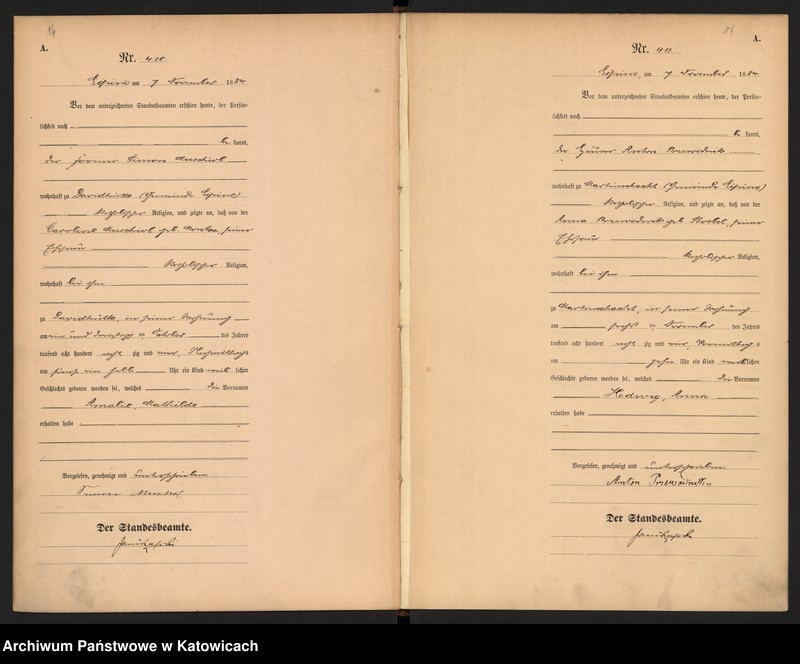 A.
Nr. 410.
Lipine am 7 November 1884
Vor dem unterzeichneten Standesbeamten erschien heute, der Persön-
lichkeit nach
be kannt,
der Simon
wohnhaft zu Davidhütte (Gemeinde Lipine)
katholischer Religion, und zeigte an, daß von der
Caroline geb. seiner
Ehefrau
katholischer Religion,
wohnhaft bei ihm
zu Davidhütte, in seiner Wohnung
am ein und dreißigsten Oktober des Jahres
tausend acht hundert acht zig und vier, Nachmittags
um fünf ein halb Uhr ein Kind weib lichen
Geschlechts geboren worden sei, welches die Vornamen
Amalie, Mathilde
erhalten habe
Vorgelesen, genehmigt und unterschrieben
Simon
Der Standesbeamte.
A.
Nr. 411
Lipine, am 7 November 1884
Vor dem unterzeichneten Standesbeamten erschien heute, der Persön-
lichkeit nach
be kannt,
der Anton
wohnhaft zu Martinschacht (Gemeinde Lipine)
katholischer Religion, und zeigte an, daß von der
Anna geb. seiner
Ehefrau
katholischer Religion,
wohnhaft bei ihm
zu Martinschacht, in seiner Wohnung
am sechs ten November des Jahres
tausend acht hundert acht zig und vier, Vormittags
um zehn Uhr ein Kind weib lichen
Geschlechts geboren worden sei, welches die Vornamen
Hedwig, Anna
erhalten habe
Vorgelesen, genehmigt und unterschrieben
Anton
Der Standesbeamte.
Archiwum Państwowe w Katowicach